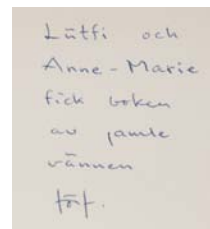 Lütfi och
Anne-Marie
fick boken
av jamle
vännen